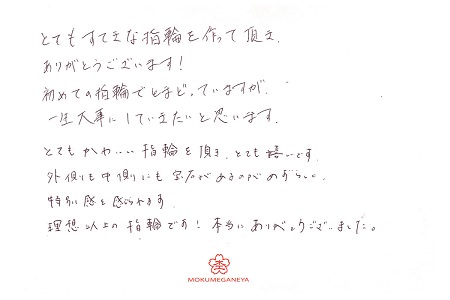 とてもすてきな指輪を作って頂き、
ありがとうございます！
初めての指輪でとまどっていますが、
一生大事にしていきたいと思います。
とてもかわいい指輪を頂き、とても嬉しいです。
外側も中側にも宝石があるのがめずらしく、
特別感を感じれます。
理想以上の指輪です！本当にありがとうございました。
MOKUMEGANEYA